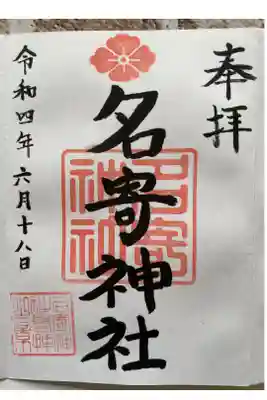 奉拝
名寄神社
令和四年六月十八日
名寄神社